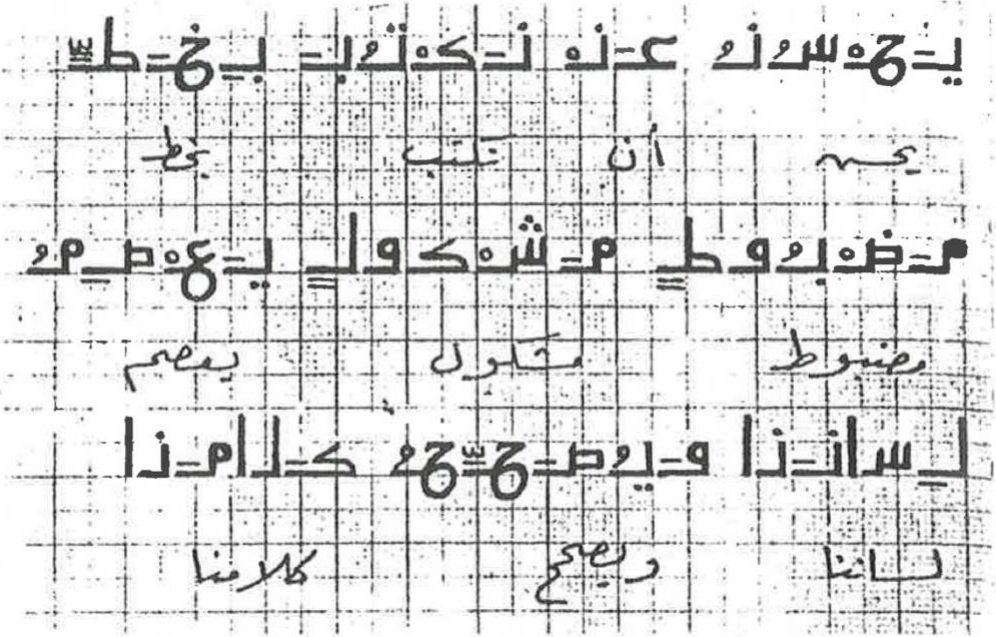 يَحْسُنُ عَنْ نَكْتُبَ بِخَطٍّ
يحسن أن نكتب بخط
مَضْبُوطٍ مَشْكُولٍ يَعْصِمُ
مضبوط مشكول يعصم
لِسانَنا وَيُصَحِّحُ كَلامَنا
لساننا ويصحح كلامنا